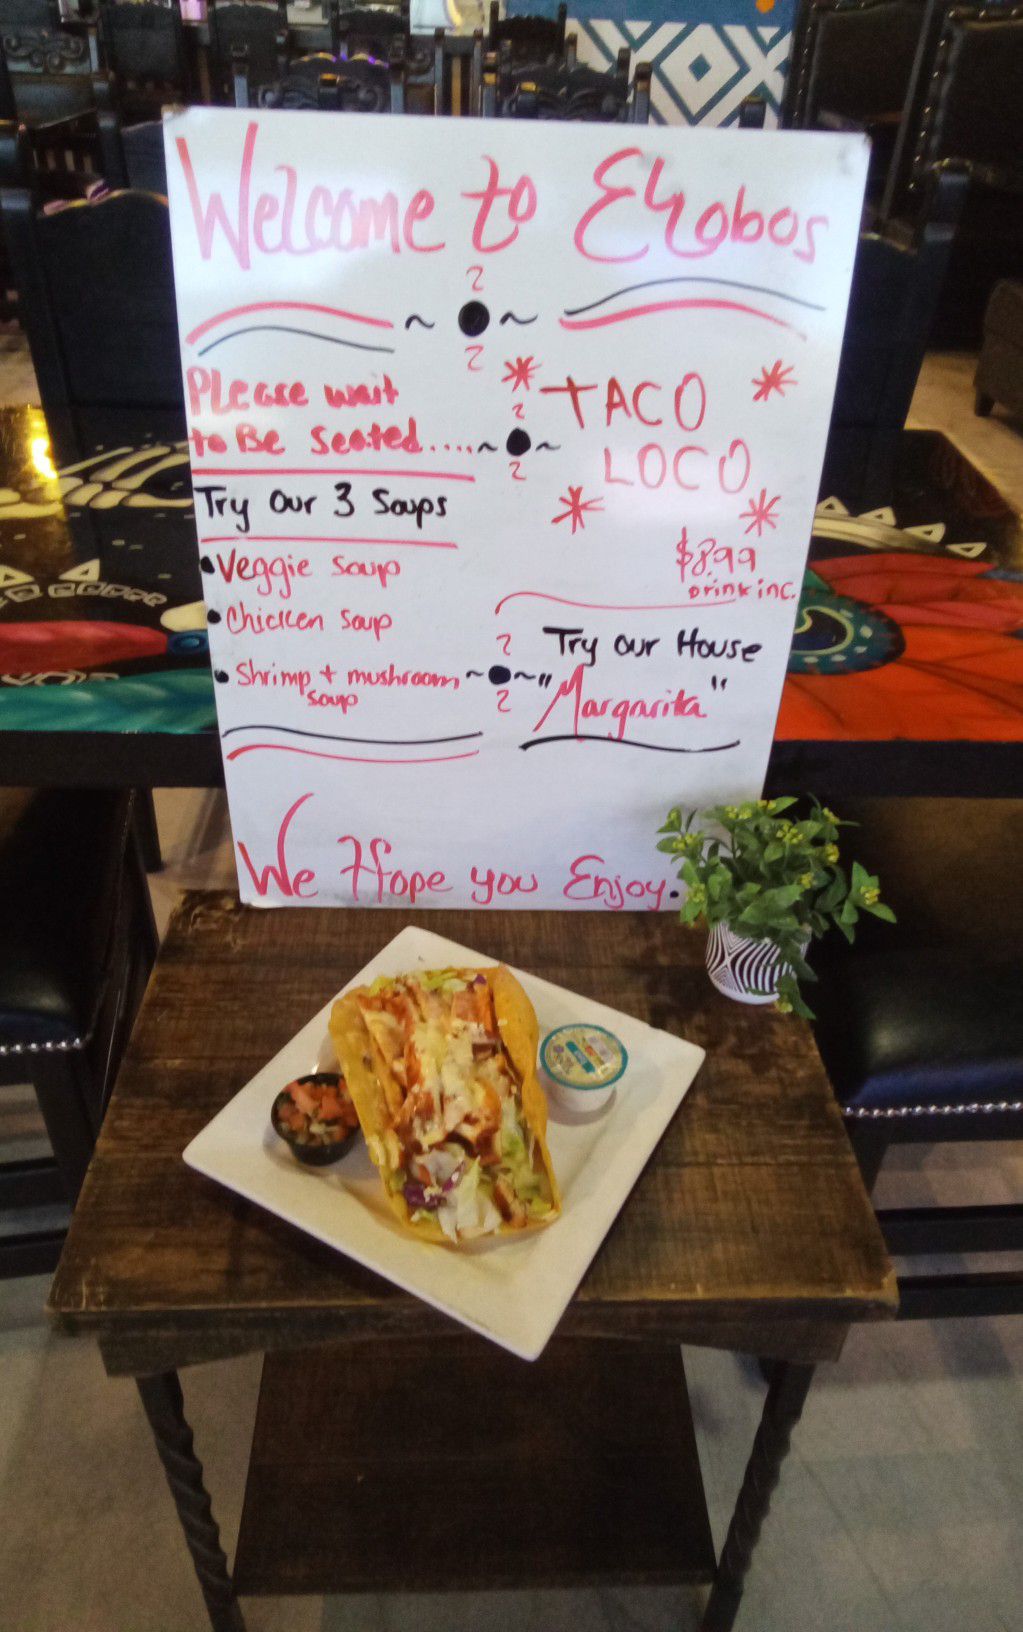 Welcome to ELobos
Please wait
to Be Seated....
Try Our 3 Soups
• Veggie Soup
• Chicken Soup
• Shrimp + mushroom
soup
TACO
LOCO
$8.99
Drink inc.
Try our House
"Margarita"
We Hope you Enjoy.